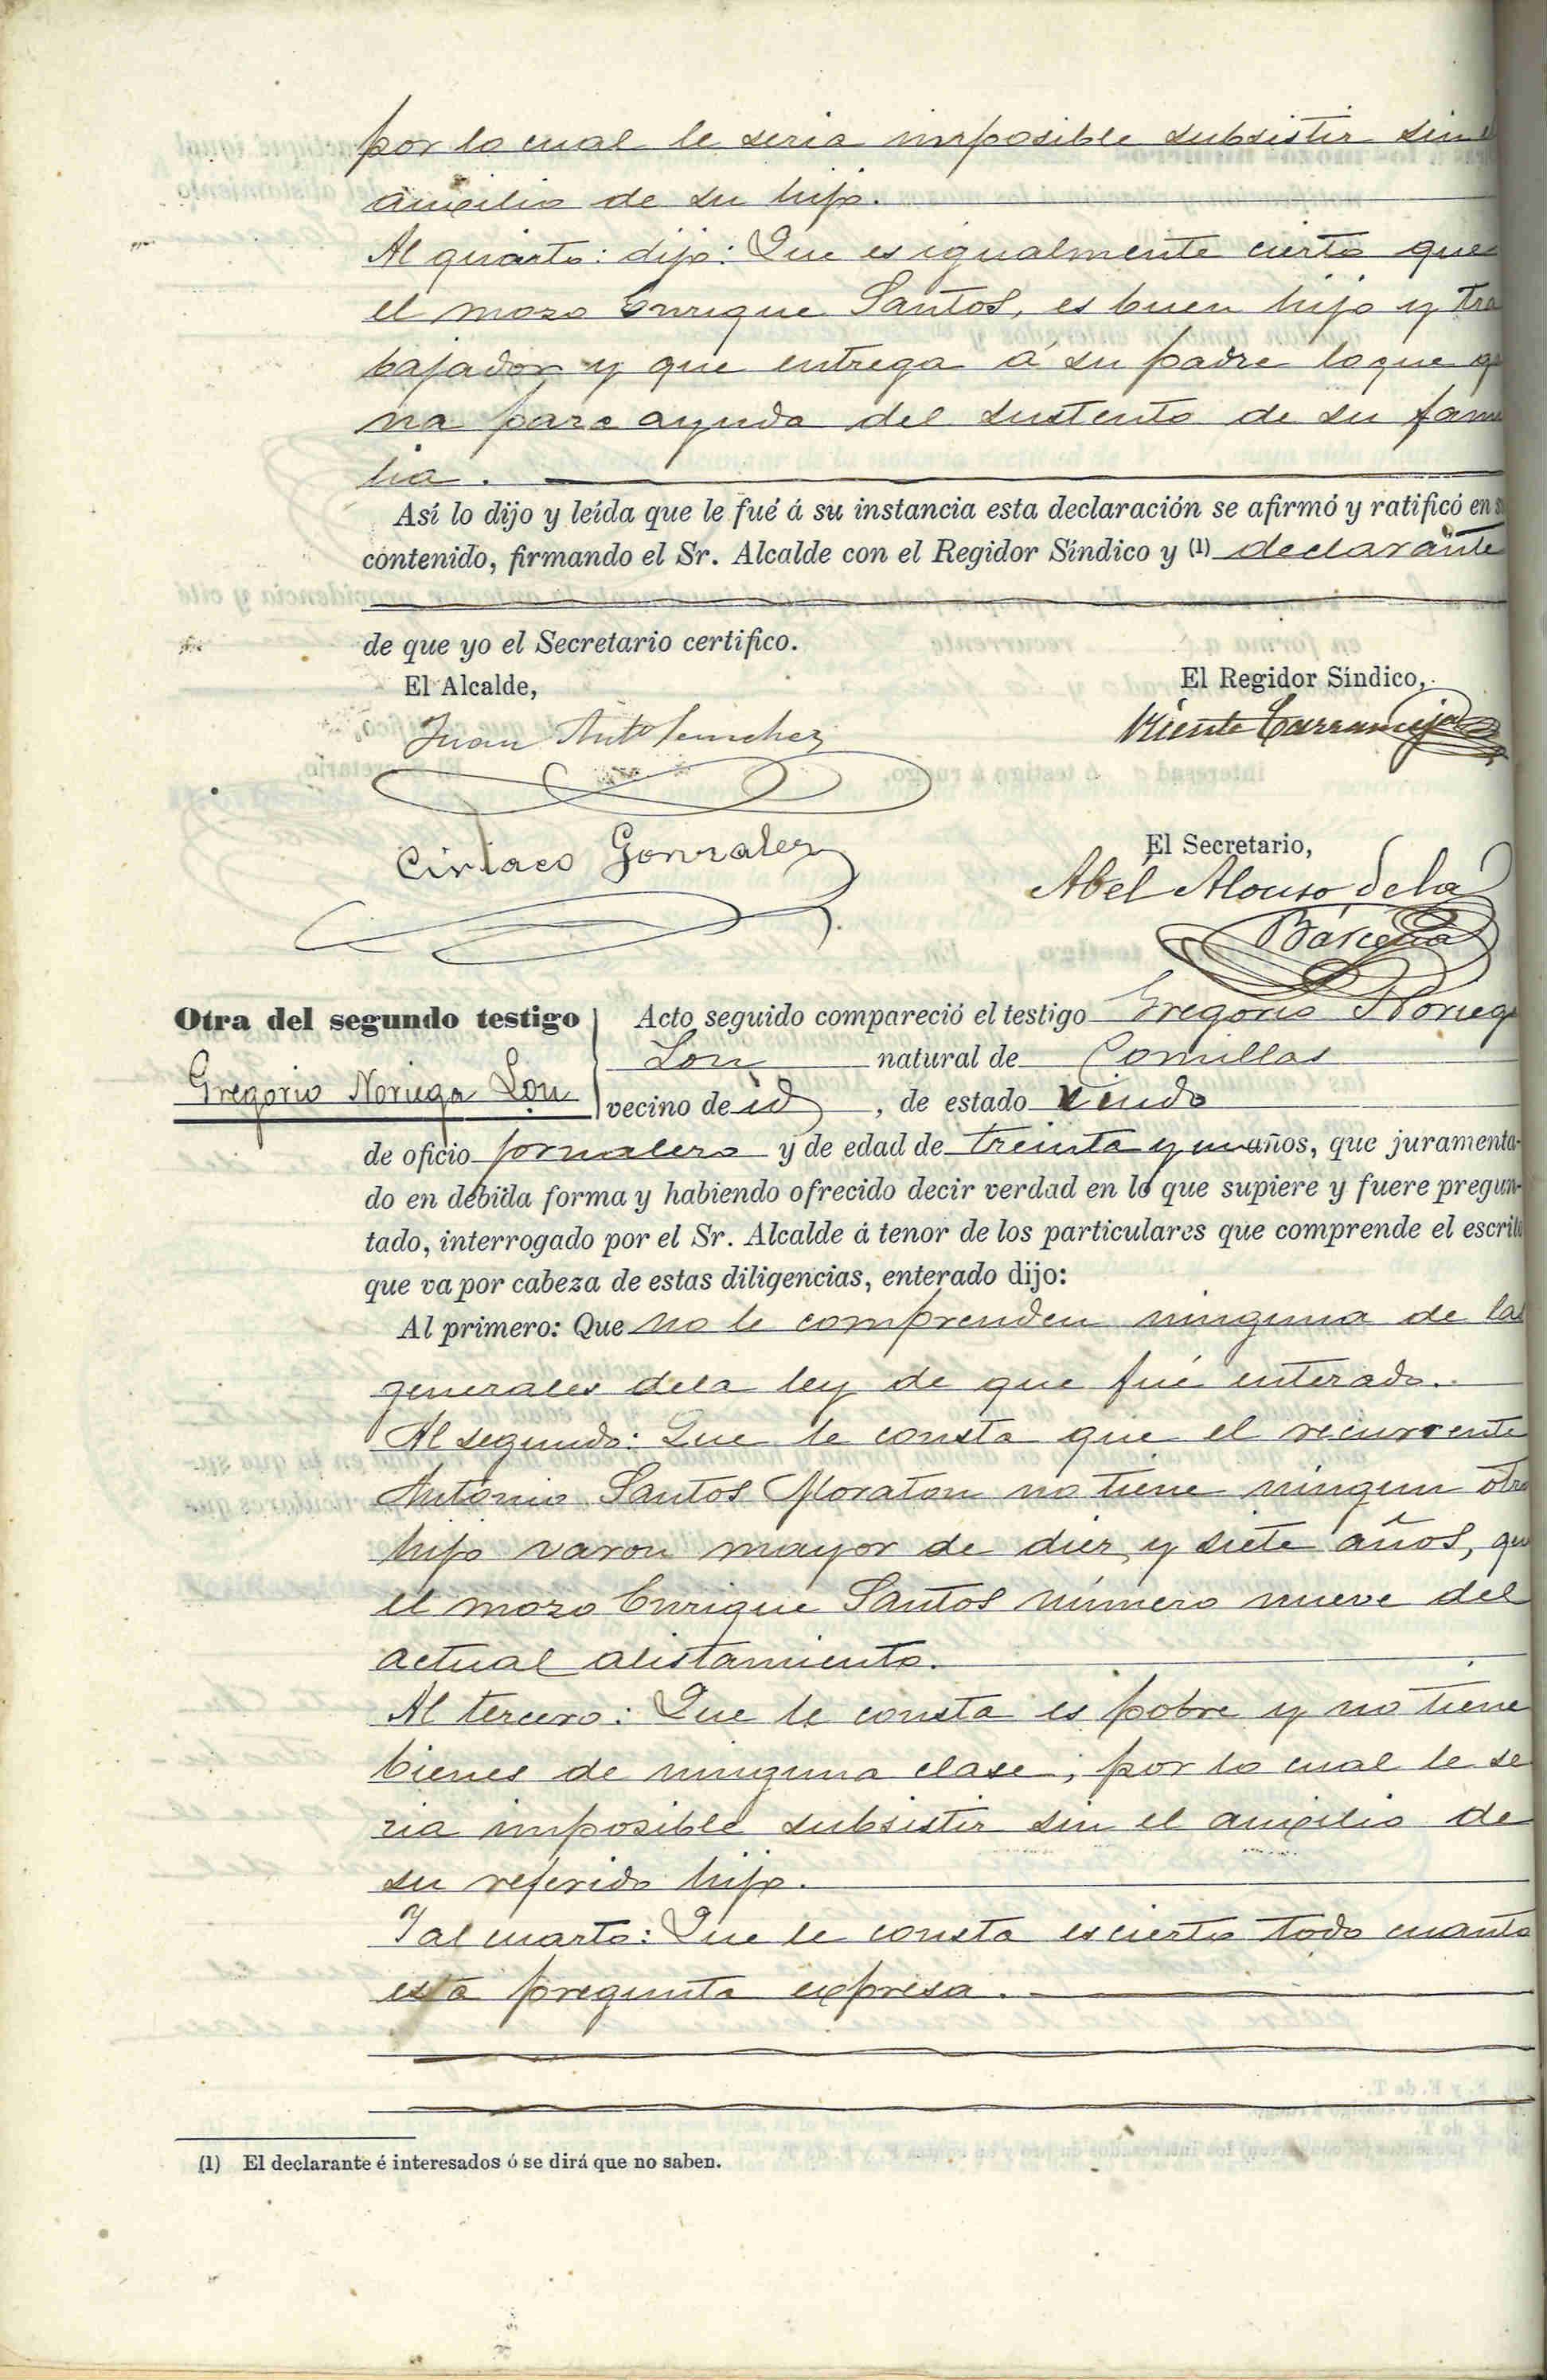 por lo cual le seria imposible subsistir sin e
auxilio de su hijo.
Al quarto: dijo: Que es igualmente cierto que
el mozo Enrique Santos, es buen hijo y tra
bajador y que entrega á su padre lo que g
na para ayuda del sustento de su fami
lia.
Así lo dijo y leída que le fué á su instancia esta declaración se afirmó y ratificó en s
contenido, firmando el Sr. Alcalde con el Regidor Síndico y (1) declarante
de que yo el Secretario certifico.
El Alcalde,
El Regidor Síndico,
Juan Anto Sanchez
Vicente Carranceja
El Secretario,
Ciriaco Gonzalez
Abél Alonso de la
Bárcena
Otra del segundo testigo
Gregorio Noriega Lon
Acto seguido compareció el testigo Gregorio Norieg
Lon natural de Comillas
vecino de id, de estado Viudo
de oficio jornalero y de edad de treinta y un años, que juramenta-
do en debida forma y habiendo ofrecido decir verdad en lo que supiere y fuere pregun-
tado, interrogado por el Sr. Alcalde á tenor de los particulares que comprende el escrito
que va por cabeza de estas diligencias, enterado dijo:
Al primero: Que no le comprenden ninguna de las
generales dela ley de que fué enterado.
Al segundo: Que le consta que el recurrente
Antonio Santos Moraton no tiene ningun otro
hijo varon mayor de diez y siete años, que
el mozo Enrique Santos número nueve del
actual alistamiento.
Al tercero: Que le consta es pobre y no tiene
bienes de ninguna clase; por lo cual le se
ria imposible subsistir sin el auxilio de
su referido hijo.
Y al cuarto: Que le consta es cierto todo cuanto
esta pregunta expresa.
(1) El declarante é interesados ó se dirá que no saben.